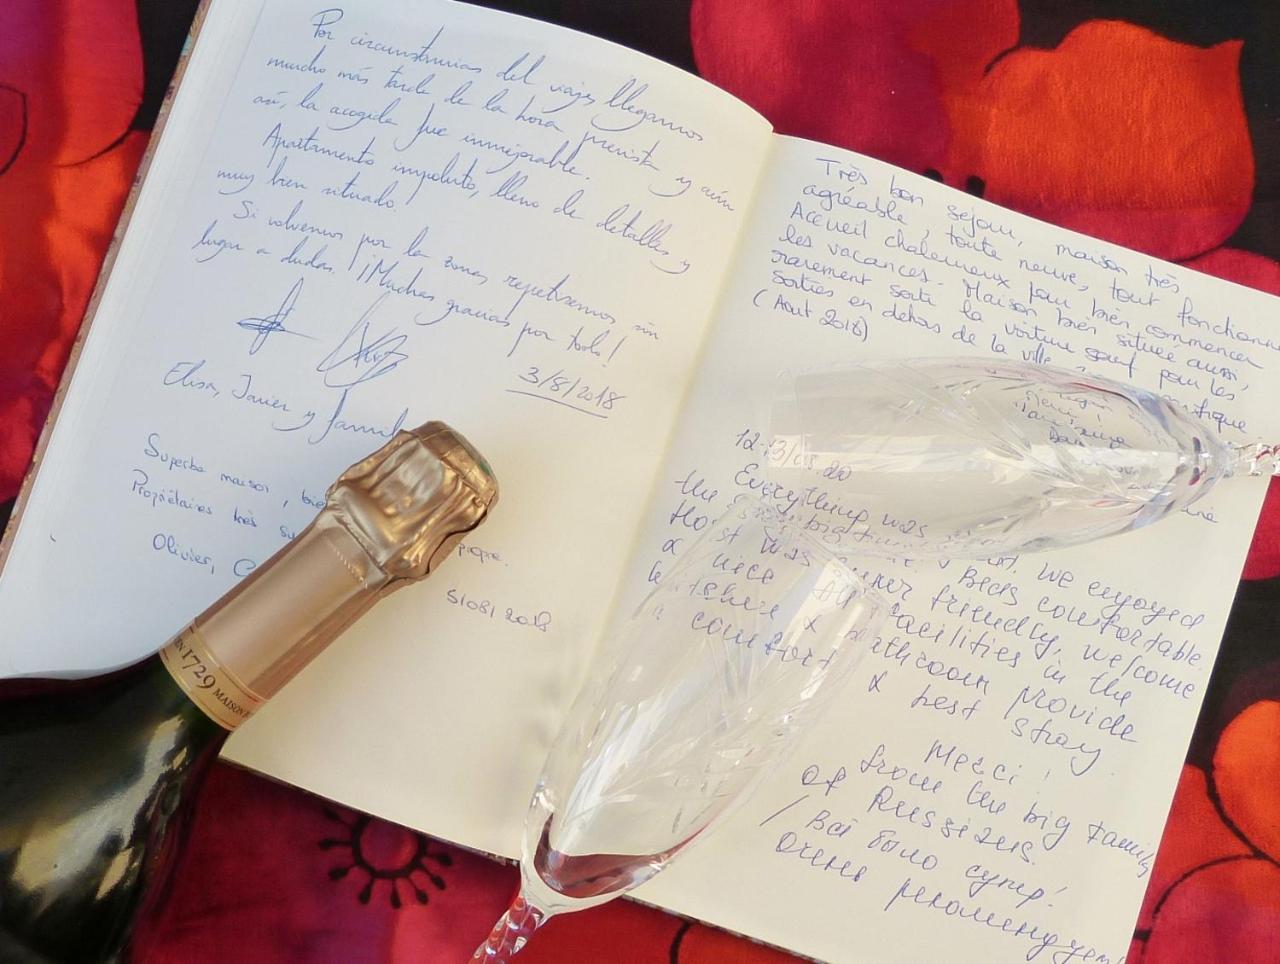 Por circunstancias del viaje llegamos
mucho más tarde de la hora prevista y aún
así, la acogida fue inmejorable.
Apartamento impoluto, lleno de detalles y
muy bien situado!
Si volvemos por la zona, repetiremos sin
lugar a dudas. ¡¡Muchas gracias por todo!
3/8/2018
Elisa, Javier y famil
Superbe maison, bie
Propriétaires très su propre.
Olivier, C
5/08/2018
EN 1729 MAISON
Très bon séjour, maison très
agréable, toute neuve, tout fonctionne
Accueil chaleureux pour bien commencer
les vacances. Maison bien située aussi,
rarement sorti la voiture sauf pour les
sorties en dehors de la ville
(Aout 2018)
Everything was
the big We enjoyed
Host was super friendly, welcome
Beds comfortable.
& nice facilities in the
kitchen & bathroom provide
comfort & best stay
Merci!
from the big family
of Russians.
/ Всё было супер!
очень рекомендуем